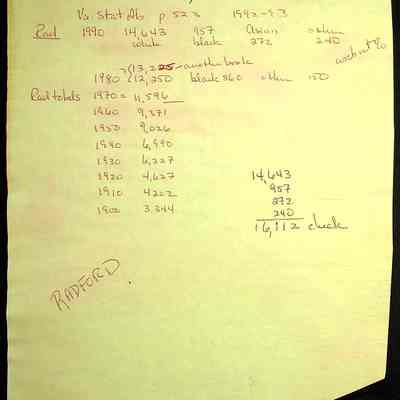 Va. Stat Ab p. 523 1992-93
Rad 1990 14,643 957 Asian other
white black 272 240
(13,225 - another book
1980 (12,250 black 860 other 150
Rad totals 1970 = 11,596
1960 9,371
1950 9,026
1940 6,990
1930 6,227
1920 4,627
1910 4202
1900 3,344
14,643
957
272
240
16,112 check
RADFORD